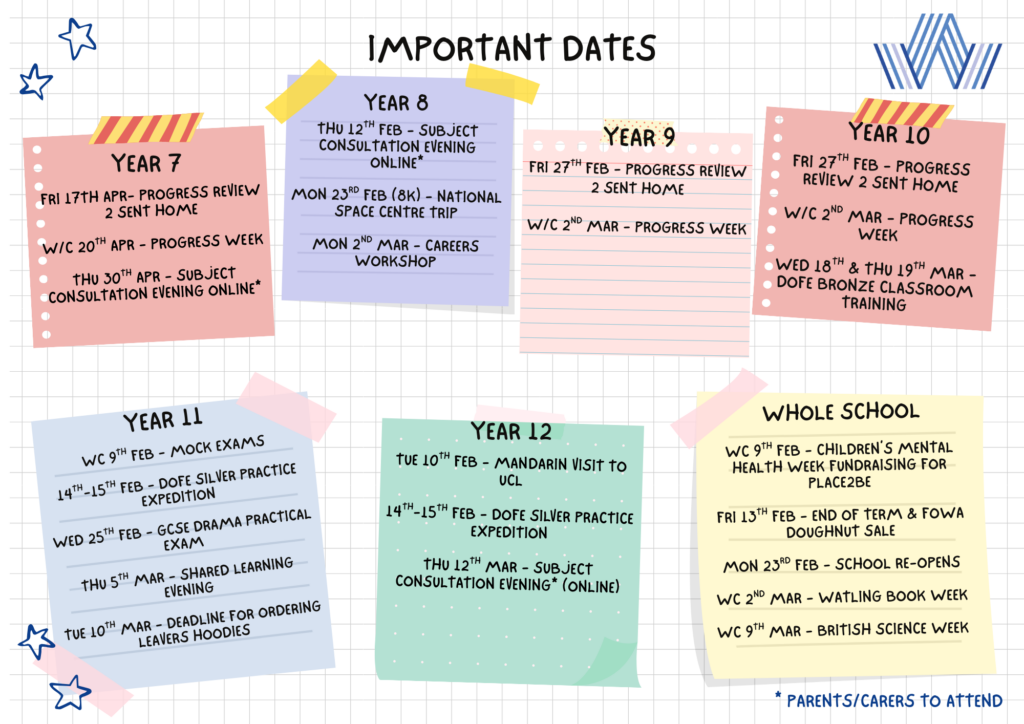 IMPORTANT DATES
YEAR 7
FRI 17TH APR- PROGRESS REVIEW
2 SENT HOME
W/C 20TH APR - PROGRESS WEEK
THU 30TH APR - SUBJECT
CONSULTATION EVENING ONLINE*
YEAR 8
THU 12TH FEB - SUBJECT
CONSULTATION EVENING
ONLINE*
MON 23RD FEB (8K) - NATIONAL
SPACE CENTRE TRIP
MON 2ND MAR - CAREERS
WORKSHOP
YEAR 9
FRI 27TH FEB - PROGRESS REVIEW
2 SENT HOME
W/C 2ND MAR - PROGRESS WEEK
YEAR 10
FRI 27TH FEB - PROGRESS
REVIEW 2 SENT HOME
W/C 2ND MAR - PROGRESS
WEEK
WED 18TH & THU 19TH MAR -
DOFE BRONZE CLASSROOM
TRAINING
YEAR 11
WC 9TH FEB - MOCK EXAMS
14TH-15TH FEB - DOFE SILVER PRACTICE
EXPEDITION
WED 25TH FEB - GCSE DRAMA PRACTICAL
EXAM
THU 5TH MAR - SHARED LEARNING
EVENING
TUE 10TH MAR - DEADLINE FOR ORDERING
LEAVERS HOODIES
YEAR 12
TUE 10TH FEB - MANDARIN VISIT TO
UCL
14TH-15TH FEB - DOFE SILVER PRACTICE
EXPEDITION
THU 12TH MAR - SUBJECT
CONSULTATION EVENING* (ONLINE)
WHOLE SCHOOL
WC 9TH FEB - CHILDREN'S MENTAL
HEALTH WEEK FUNDRAISING FOR
PLACE2BE
FRI 13TH FEB - END OF TERM & FOWA
DOUGHNUT SALE
MON 23RD FEB - SCHOOL RE-OPENS
WC 2ND MAR - WATLING BOOK WEEK
WC 9TH MAR - BRITISH SCIENCE WEEK
* PARENTS/CARERS TO ATTEND